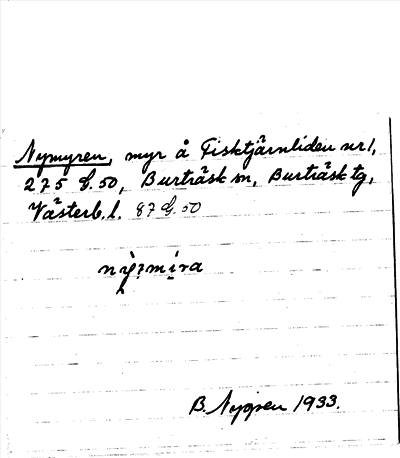 Nymyren, myr å Fisktjärnliden nr 1,
275 G.50, Burträsk sn, Burträsk tg,
Västerb. l. 87 G. 50
B. Nyppen 1933.